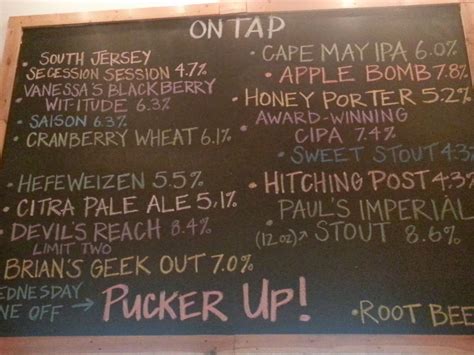 ON TAP
• SOUTH JERSEY
SECESSION SESSION 4.7%
VANESSA'S BLACKBERRY
WIT-ITUDE 6.3%
• SAISON 6.3%
CRANBERRY WHEAT 6.1%
• HEFEWEIZEN 5.5%
• CITRA PALE ALE 5.1%
• DEVIL'S REACH 8.4%
LIMIT TWO
BRIAN'S GEEK OUT 7.0%
EDNESDAY
NE OFF → PUCKER UP!
• CAPE MAY IPA 6.0%
• APPLE BOMB 7.8%
• HONEY PORTER 5.2%
• AWARD-WINNING
CIPA 7.4%
• SWEET STOUT 4.3%
• HITCHING POST 4.3%
PAUL'S IMPERIAL
(12 oz) → STOUT 8.6%
• ROOT BEE